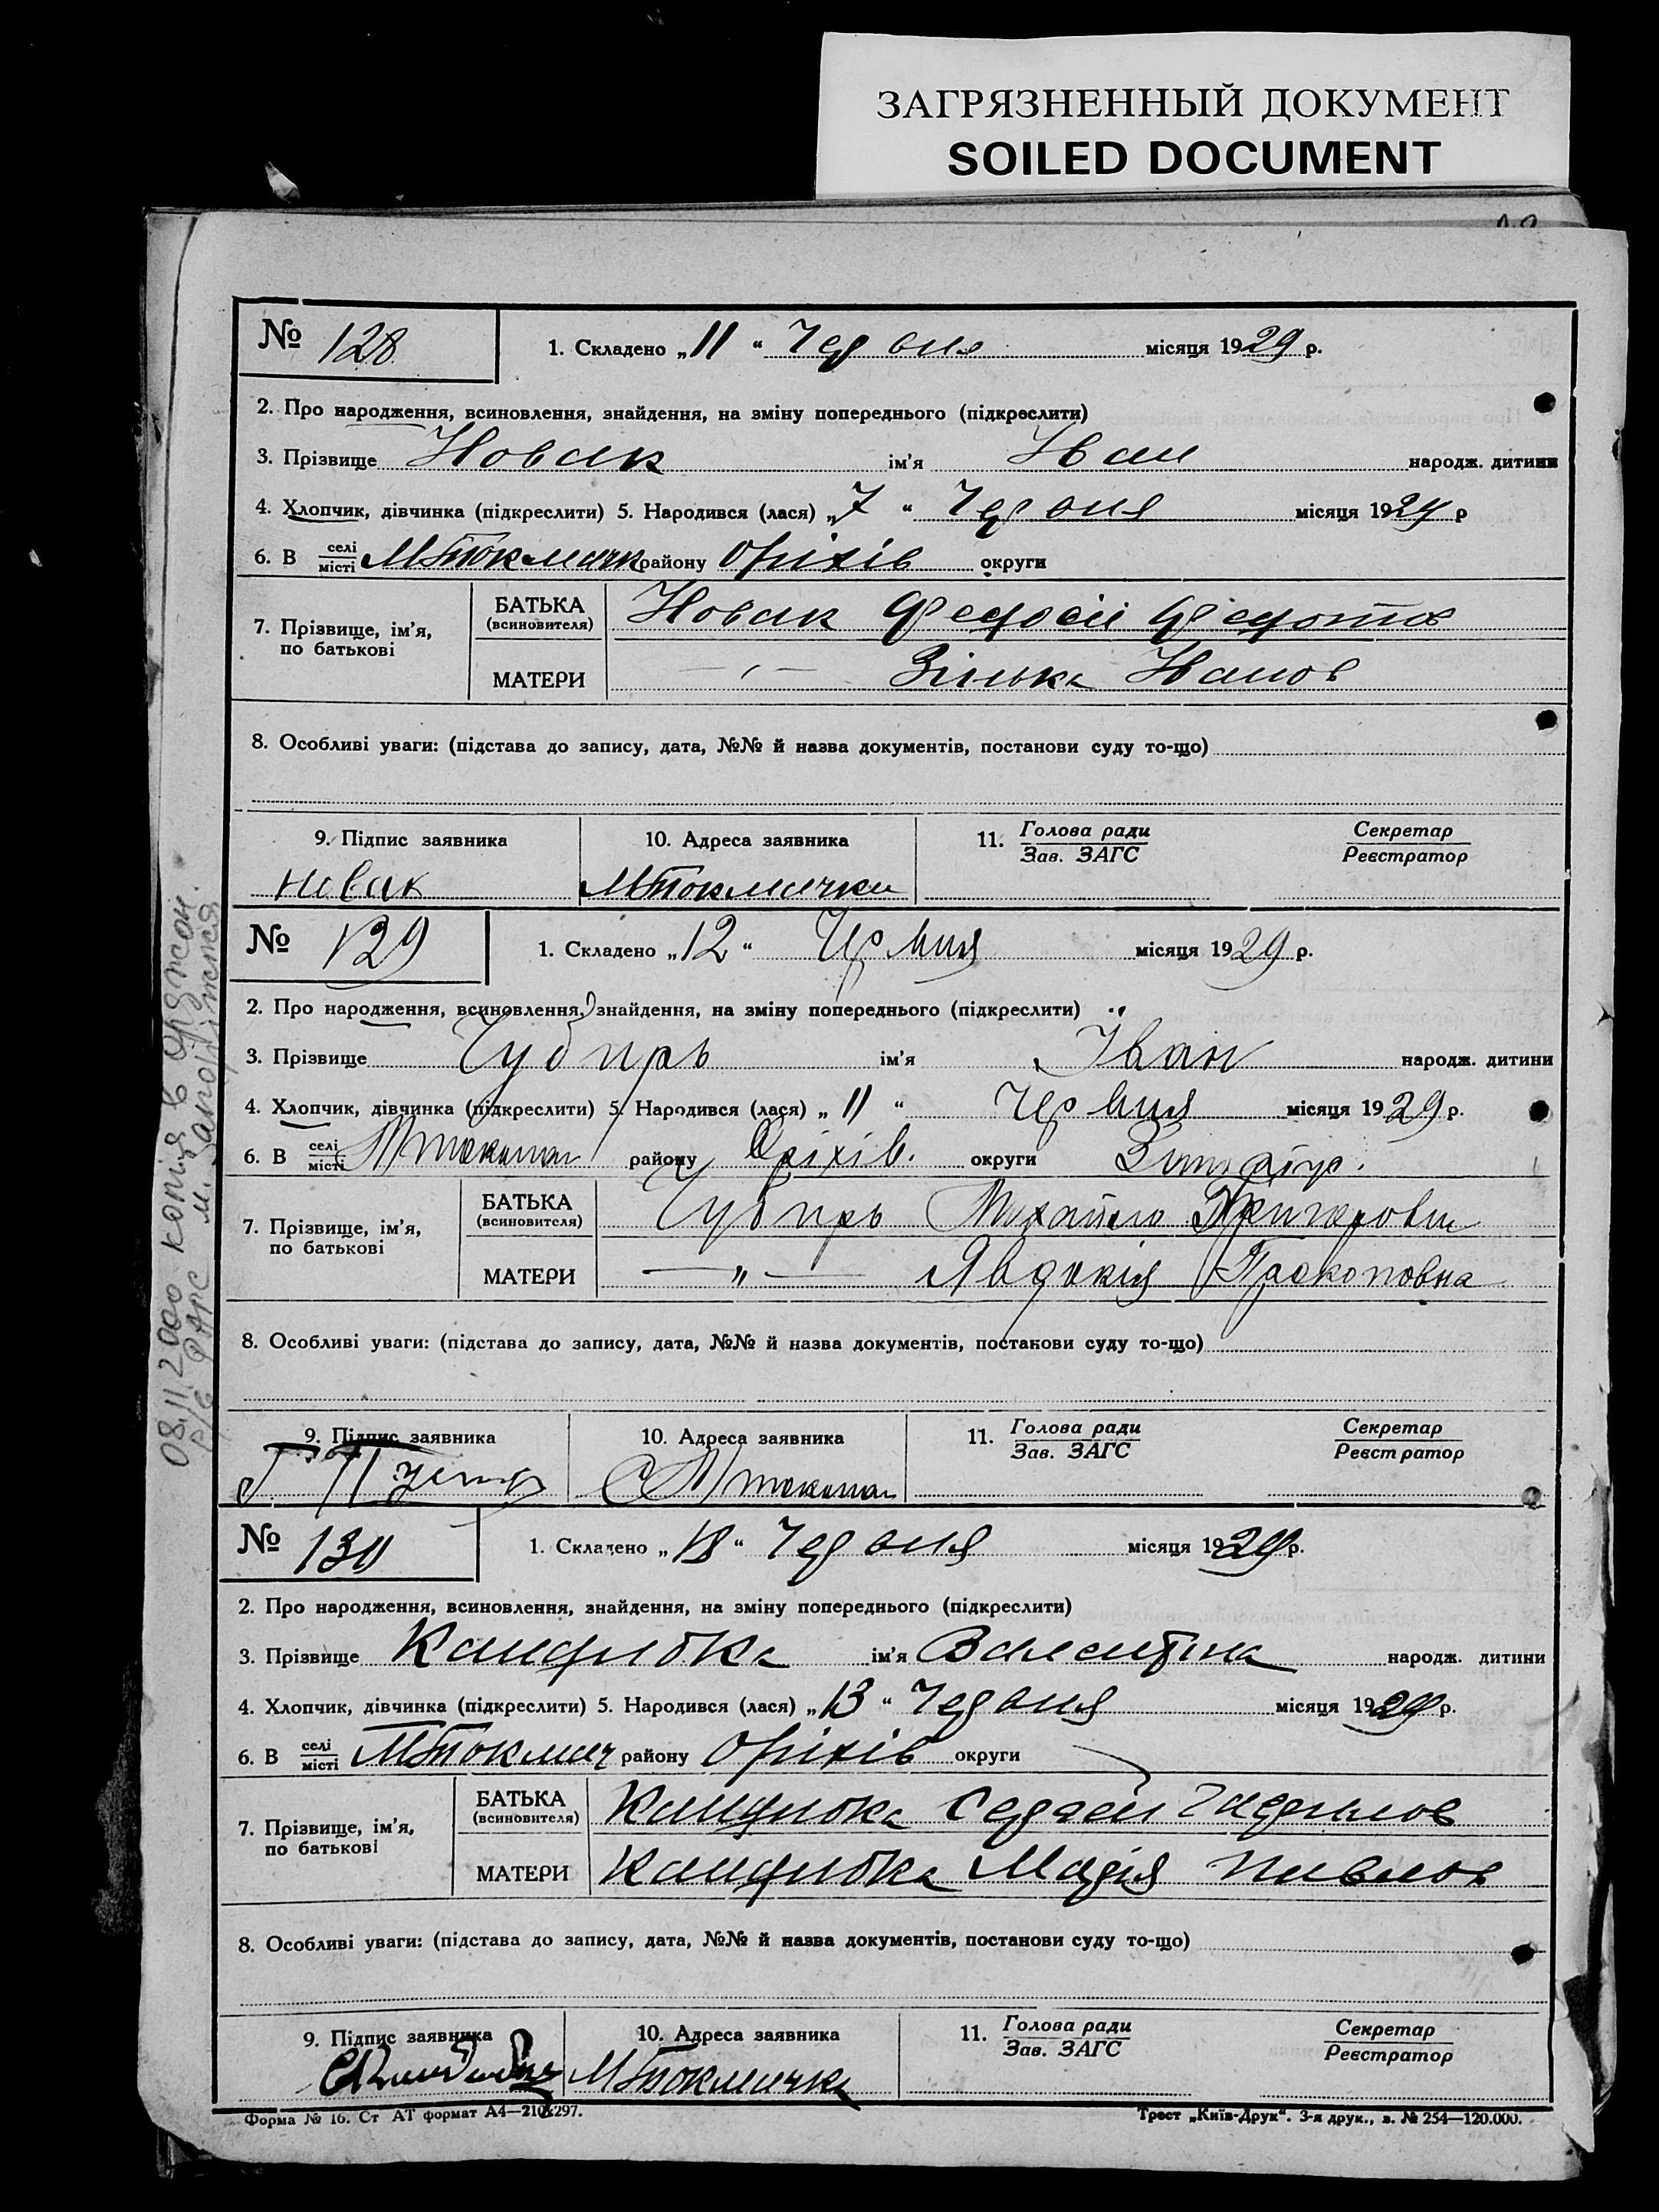 ЗАГРЯЗНЕННЫЙ ДОКУМЕНТ
SOILED DOCUMENT
№ 128
1. Складено „11“ Червня місяця 1929 р.
2. Про народження, всиновлення, знайдення, на зміну попереднього (підкреслити)
3. Прізвище Новак ім'я Іван народж. дитини
4. Хлопчик, дівчинка (підкреслити) 5. Народився (лася) „7“ Червня місяця 1929 р
6. В селі місті МТокмачк району Оріхів округи
7. Прізвище, ім'я, по батькові
БАТЬКА (всиновителя) Новак Федосій Федотов
МАТЕРИ —„— Зінька Іванов
8. Особливі уваги: (підстава до запису, дата, №№ й назва документів, постанови суду то-що)
9. Підпис заявника
10. Адреса заявника
11. Голова ради Зав. ЗАГС
Секретар Реєстратор
Новак МТокмачки
№ 129
1. Складено „12“ Червня місяця 1929 р.
2. Про народження, всиновлення, знайдення, на зміну попереднього (підкреслити)
3. Прізвище Чубирь ім'я Іван народж. дитини
4. Хлопчик, дівчинка (підкреслити) 5. Народився (лася) „11“ Червня місяця 1929 р.
6. В селі місті МТокмач району Оріхів. округи
7. Прізвище, ім'я, по батькові
БАТЬКА (всиновителя) Чубирь Михайло Григорович
МАТЕРИ —„— Явдокія Прокоповна
8. Особливі уваги: (підстава до запису, дата, №№ й назва документів, постанови суду то-що)
9. Підпис заявника
10. Адреса заявника
11. Голова ради Зав. ЗАГС
Секретар Реєстратор
С МТокмач
№ 130
1. Складено „18“ Червня місяця 1929 р.
2. Про народження, всиновлення, знайдення, на зміну попереднього (підкреслити)
3. Прізвище Кандибка ім'я Валентина народж. дитини
4. Хлопчик, дівчинка (підкреслити) 5. Народився (лася) „13“ Червня місяця 1929 р.
6. В селі місті МТокмач району Оріхів округи
7. Прізвище, ім'я, по батькові
БАТЬКА (всиновителя) Кандибка Сергей Гаврилов
МАТЕРИ Кандибка Марія Павлов
8. Особливі уваги: (підстава до запису, дата, №№ й назва документів, постанови суду то-що)
9. Підпис заявника
10. Адреса заявника
11. Голова ради Зав. ЗАГС
Секретар Реєстратор
МТокмачка
Форма № 16. Ст АТ формат А4—210×297.
Трест „Київ-Друк“. 3-я друк., з. № 254—120.000.
08.11.2000 копія в
м. Запоріжжя